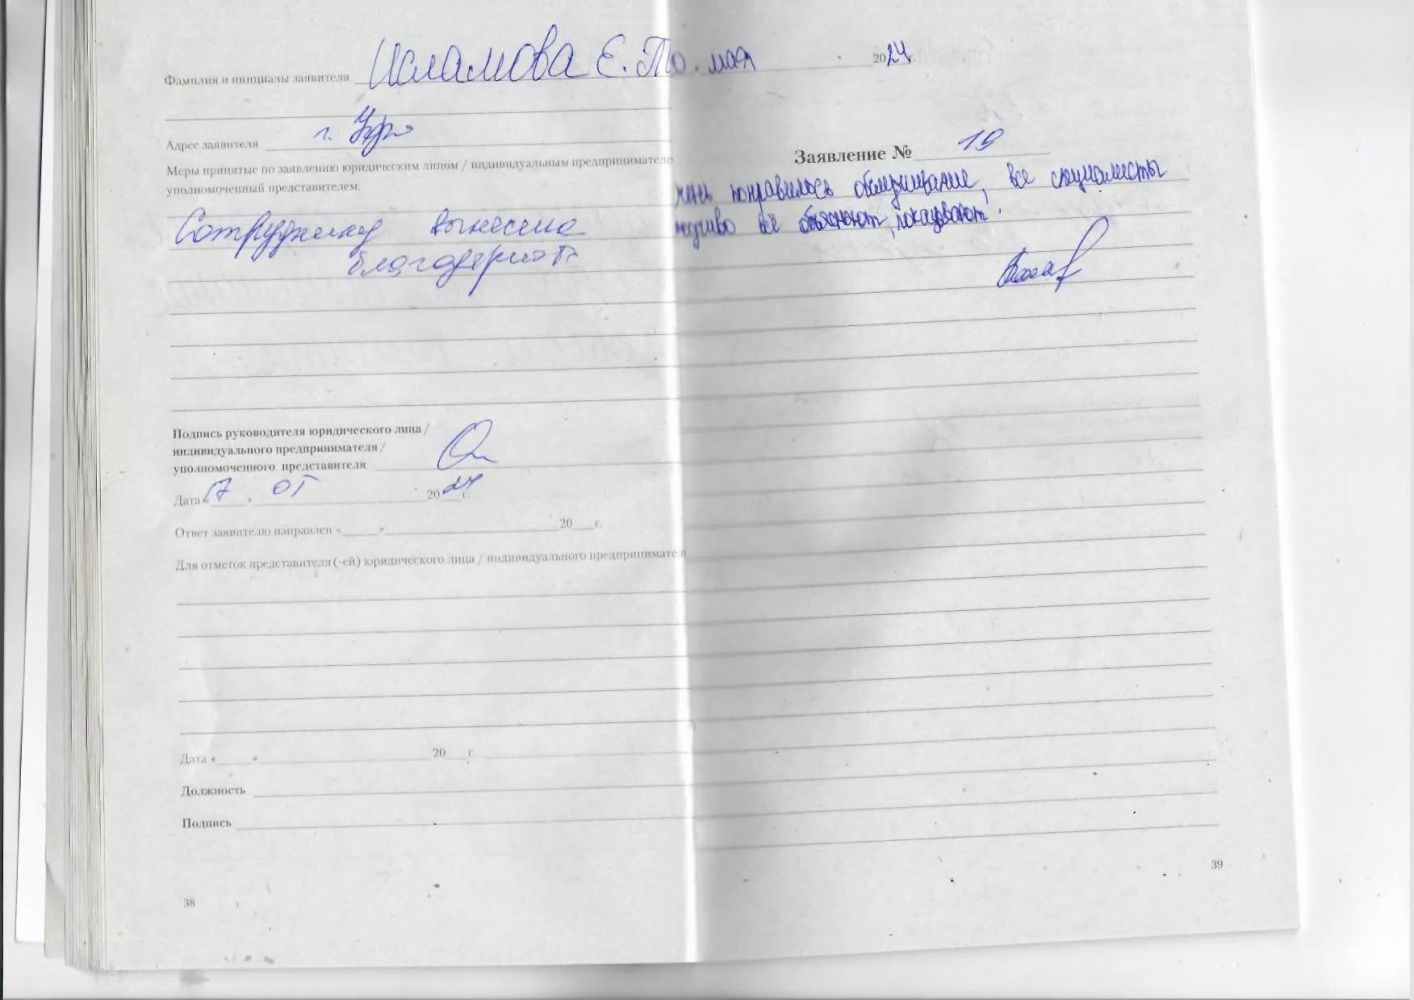 Фамилия и инициалы заявителя Исламова Е. Ю. мая 2024г.
Адрес заявителя г. Уфа
Заявление № 19
Меры принятые по заявлению юридическим лицом / индивидуальным предпринимателе
уполномоченный представителем:
чень понравилось обслуживание, все специалисты
все объясняют, показывают!
Сотруднику вынесена
благодарность
Подпись руководителя юридического лица /
индивидуального предпринимателя /
уполномоченного представителя
Дата 17 . 05 2024 г.
Ответ заявителю направлен «____»____ 20__г.
Для отметок представителя (-ей) юридического лица / индивидуального предпринимател
Дата «____» ____ 20__г.
Должность
Подпись
38
39